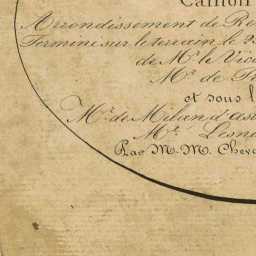 Canton
Arrondissement de Re
Terminé sur le terrain le 2
de Mr. le Vico
Mr. de
et sous l
Mr. de Milan d'as
Mr. Lesne
Par M.M. Cheva